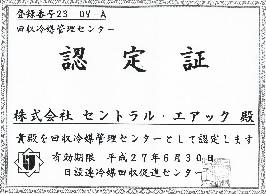 登録番号23 OV A
回収冷媒管理センター
認定証
株式会社 セントラル・エアック 殿
貴殿を回収冷媒管理センターとして認定します
有効期限 平成27年6月30日
日設連冷媒回収促進センター